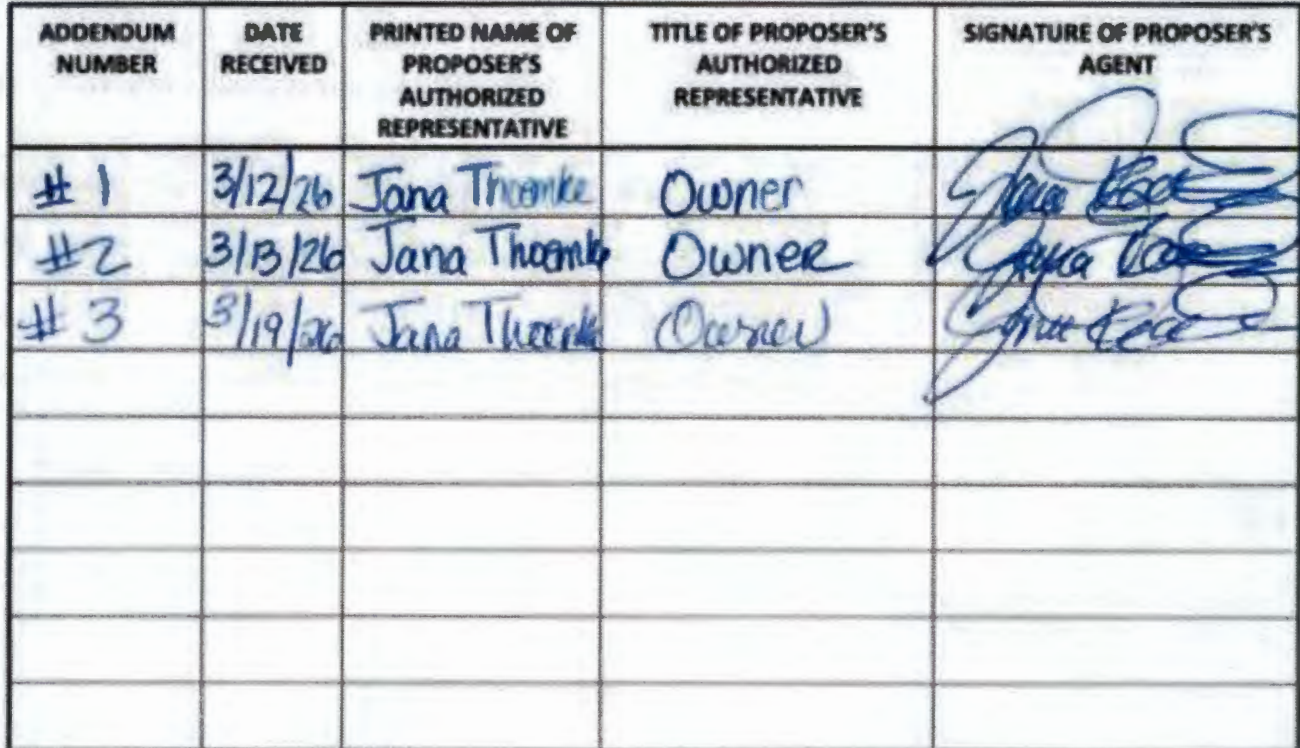 ADDENDUM NUMBER
DATE RECEIVED
PRINTED NAME OF PROPOSER'S AUTHORIZED REPRESENTATIVE
TITLE OF PROPOSER'S AUTHORIZED REPRESENTATIVE
SIGNATURE OF PROPOSER'S AGENT
# 1 3/12/26 Jana Thoemke Owner
#2 3/13/26 Jana Thoemke Owner
# 3 3/19/26 Jana Thoemke Owner